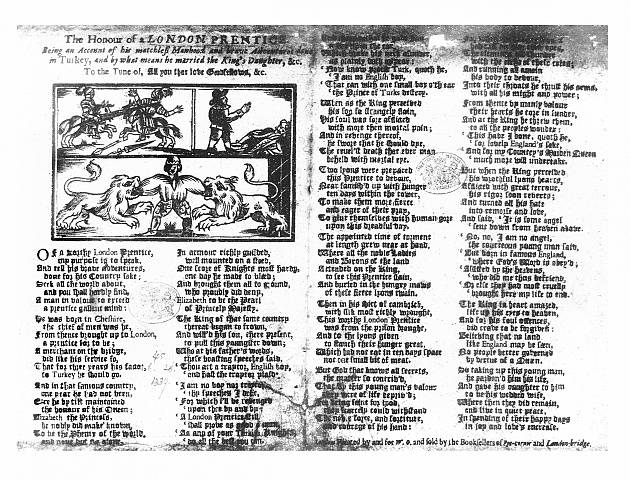 The Honour of a LONDON PRENTICE
Being an Account of his matchless Manhood and brave Adventures done
in Turkey, and by what means he married the King's Daughter, &c.
To the Tune of, All you that love Goodfellows, &c.
OF a worthy London Prentice,
my purpose is to speak,
And tell his brave adventures,
done for his Country sake;
Seek all the world about,
and you shall hardly find,
A man in valour to exceed
a prentice gallant mind:
He was born in Cheshire,
the chief of men was he,
From thence brought up to London,
a prentice for to be;
A merchant on the bridge,
did like his service so,
That for three years his factor,
to Turkey he should go.
And in that famous country,
one year he had not been,
Ere he by tilt maintained
the honour of his Queen;
Elizabeth the Princess,
he nobly did make known,
To be the Phenix of the world,
and none but she alone.
In armour richly guilded,
well mounted on a steed,
One score of Knights most hardy,
one day he made to bleed;
And brought them all to ground,
who proudly did deny,
Elizabeth to be the Pearl
of Princely Majesty.
The King of that same country
thereat began to frown,
And will'd his son, there present,
to pull this youngster down;
Who at his father's words,
these boasting speeches said,
Thou art a traytor, English boy,
and hast the traytor plaid.
I am no boy nor traytor,
thy speeches I defy,
For which I'll be revenged
upon thee by and by;
A London Prentice still
shall prove as good a man,
As any of your Turkish Knights,
do all the best you can.
as plainly did appear:
Now know proud Turk, quoth he,
I am no English boy,
That can with one small box o'th ear
the Prince of Turks destroy.
When as the King perceived
his son so strangely slain,
His soul was sore afflicted
with more then mortal pain;
And in revenge thereof,
he swore that he should dye,
The cruel'st death that ever man
beheld with mortal eye.
Two lyons were prepared
this Prentice to devour,
Near famish'd up with hunger
ten days within the tower,
To make them more fierce
and eager of their pray,
To glut themselves with human gore
upon this dreadful day.
The appointed time of torment
at length grew near at hand,
Where all the noble Ladies
and Barons of the land
Attended on the King,
to see this Prentice slain,
And buried in the hungry maws
of these fierce lyons twain.
Then in his shirt of cambrick,
with silk most richly wrought,
This worthy London Prentice
was from the prison brought,
And to the lyons given
to stanch their hunger great,
Which had not eat in ten days space
not one small bit of meat.
But God that knows all secrets,
the matter so contriv'd,
That by this young man's valour
they were of life depriv'd;
being faint for food,
they scarcely could withstand
The noble force, and fortitude,
and courage of his hand:
with the
And running all amain
his body to devour,
Into their throats he thrust his arms,
with all his might and power;
From thence by manly valour
their hearts he tore in sunder,
And at the King he threw them,
to all the peoples wonder:
This have I done, quoth he,
for lovely England's sake,
And for my Country's Maiden Queen
much more will undertake.
But when the King perceiv'd
his wrothful lyons hearts,
Afflicted with great terrour,
his rigor soon reverts;
And turned all his hate
into remorse and love,
And said, It is some angel
sent down from heaven above.
No, no, I am no angel,
the courteous young man said,
But born in famous England,
where God's Word is obey'd;
Assisted by the heavens,
who did me thus befriend,
Or else they had most cruelly
brought here my life to end.
The King in heart amazed,
lift up his eyes to heaven,
And for his foul offences,
did crave to be forgiven:
Believing that no land
like England may be seen,
No people better governed
by vertue of a Queen.
So taking up this young man,
he pardon'd him his life,
And gave his daughter to him
to be his wedded wife,
Where then they did remain,
and live in quiet peace,
In spending of their happy days
in joy and love's increase.
Printed by and for W. O. and sold by the Booksellers of Pye-corner and London-bridge.